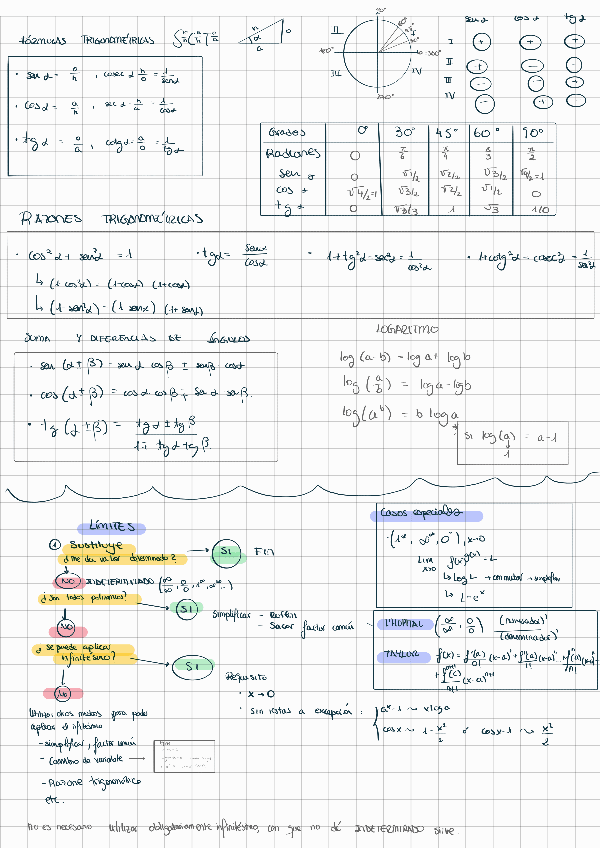 FÓRMULAS TRIGONOMÉTRICAS
sen α = o/h , cosec α h/o = 1/senα
cosα = a/h , sec α = h/a = 1/cosα
tg α = o/a , cotgα = a/o = 1/tgα
h
o
α
a
II
III
IV
sen α cos α tg α
I + + +
II + - -
III - - +
IV - + -
Grados 0° 30° 45° 60° 90°
Radianes 0 π/6 π/4 π/3 π/2
sen α 0 √1/2 √2/2 √3/2 √4/2=1
cos α √4/2=1 √3/2 √2/2 √1/2 0
tg α 0 √3/3 1 √3 1/0
RAZONES TRIGONOMÉTRICAS
· cos²α + sen²α = 1
· tgα = senα/cosα
· 1+tg²α = sec²α = 1/cos²α
· 1+cotg²α = cosec²α = 1/sen²α
↳ (1 - cos²α) = (1-cosα) (1+cosα)
↳ (1 - sen²α) = (1 - senα) (1+senα)
SUMA Y DIFERENCIAS DE ÁNGULOS
· sen (α ± β) = senα cosβ ± senβ cosα
· cos (α ± β) = cosα cosβ ∓ senα senβ.
· tg (α ± β) = tgα ± tgβ / 1 ∓ tgα tgβ
LOGARITMO
log (a·b) = log a + log b
log (a/b) = log a - log b
log (a^b) = b log a
Si log(a) = a-1
1
LÍMITES
① Sustituye
¿me da valor determinado?
SI
FIN
NO
INDETERMINADO (∞/∞, 0/0, 1^∞, ∞^∞..)
¿Son todos polinomios?
SI
Simplificar - Ruffini
- Sacar factor común
NO
¿Se puede aplicar
infinitésimo?
SI
NO
Requisito
· x → 0
· Sin restas a excepción :
a^x - 1 ~ x log a
cosx ~ 1 - x²/2 ó cosx-1 ~ x²/2
aplicar el infinitésimo
- simplificar, factor común
- Cambio de variable →
- Razone trigonométrico
etc.
Casos especiales
· (1^∞, ∞^∞, 0^0) , x→0
Lim x→0 f(x)^g(x) = L
↳ log L → conmutar → simplificar
↳ L = e^x
L'HOPITAL (∞/∞, 0/0) (numerador)' / (denominador)'
TAYLOR
No es necesario utilizar obligatoriamente infinitésimo, con que no dé INDETERMINADO sirve